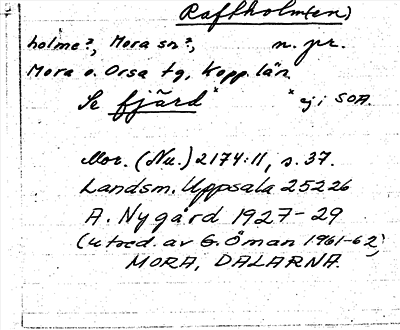 Raftholm(en)
holme?, Mora sn?, n. pr.
Mora o. Orsa tg, Kopp. län
Se fjärd × × ej i SOA.
Mor. (Nu.) 2174:11, s. 37.
Landsm. Uppsala 25226
A. Nygård 1927-29
(utred. av G. Öman 1961-62),
MORA, DALARNA.